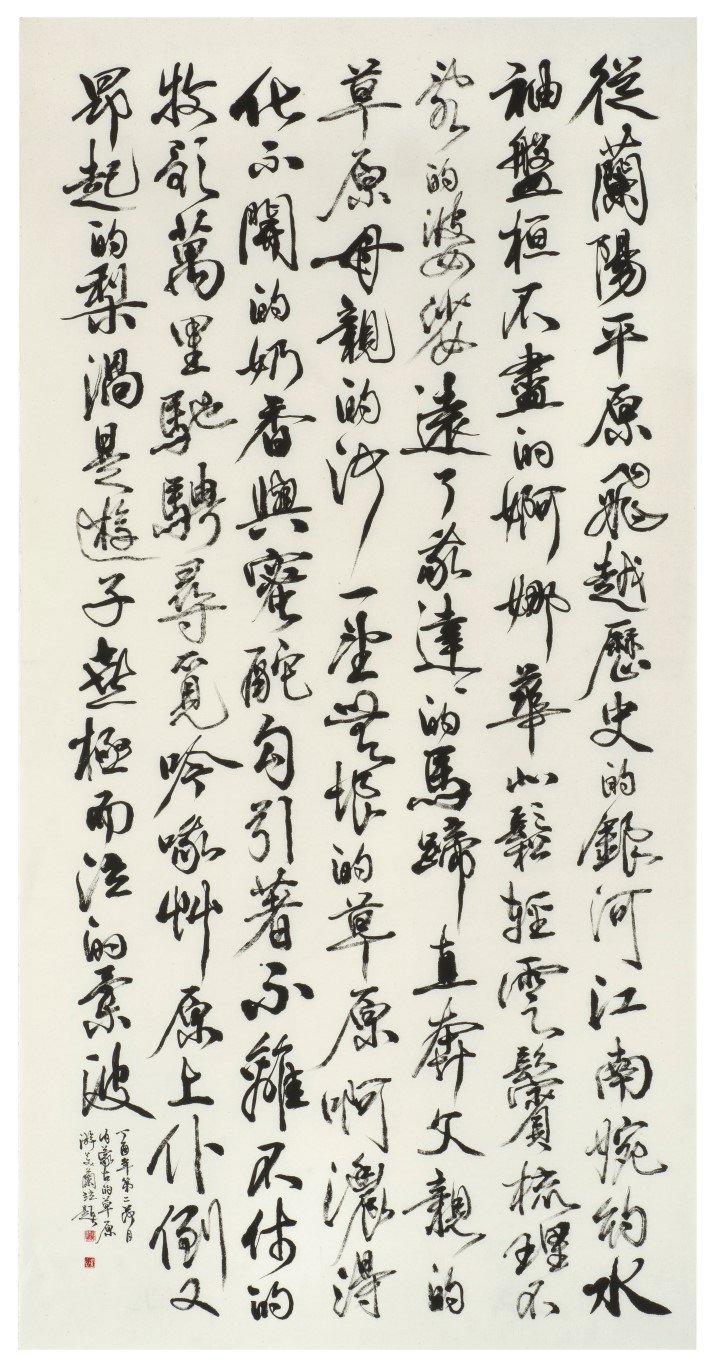 從蘭陽平原飛越歷史的銀河江南婉約水
袖盤桓不盡的婀娜鬆輕雲鬢梳理不
的婆娑遠了達的馬蹄直奔父親的
草原母親的河一望無垠的草原啊濃得
化不開的奶香與蜜酡勾引著不離不休的
牧歌萬里馳騁尋覓吟啄艸原上仆倒又
昂起的梨渦是遊子喜極而泣的柔波
丁酉年第二月
內蒙古的草原
游美蘭並題